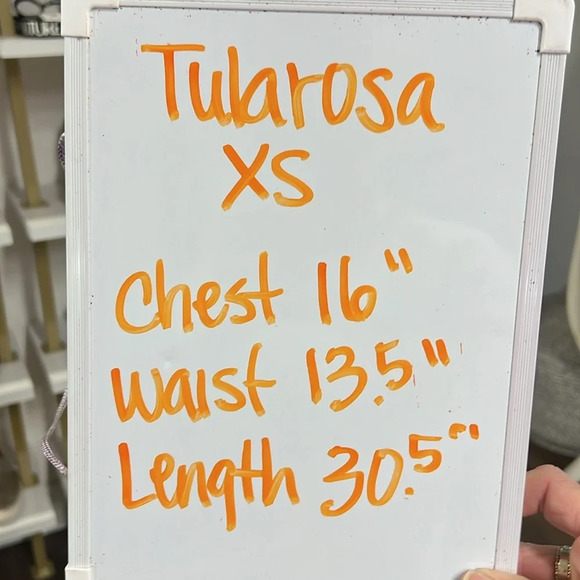 Tularosa
XS
Chest 16"
Waist 13.5"
Length 30.5"